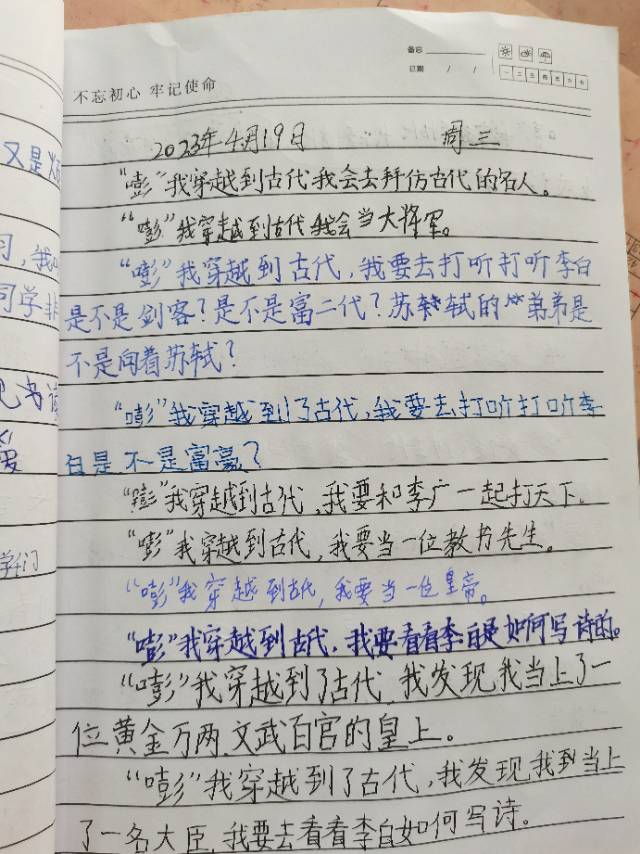 备忘
日期 / /
一 二 三 四 五 六 日
不忘初心 牢记使命
又是
2023年4月19日 周三
"嘭"我穿越到古代我会去拜仿古代的名人。
"嘭"我穿越到古代我会当大将军。
习，我
"嘭"我穿越到古代，我要去打听打听李白
司学非
是不是剑客？是不是富二代？苏轼的弟弟是
不是向着苏轼？
见书读
"嘭"我穿越到了古代，我要去打听打听李
爱
白是不是富豪？
"嘭"我穿越到古代，我要和李广一起打天下。
"嘭"我穿越到古代，我要当一位教书先生。
学们
"嘭"我穿越到古代，我要当一位皇帝。
"嘭"我穿越到古代，我要看看李白是如何写诗的。
"嘭"我穿越到了古代，我发现我当上了一
位黄金万两，文武百官的皇上。
"嘭"我穿越到了古代，我发现我到当上
了一名大臣，我要去看看李白如何写诗。